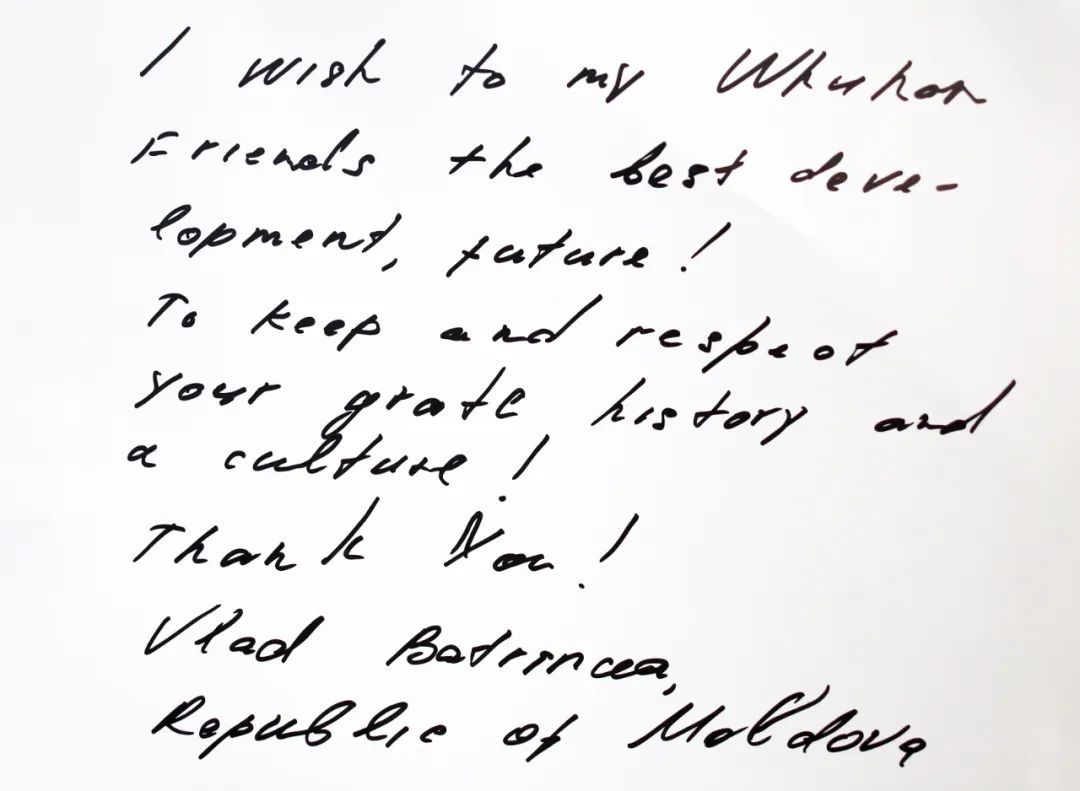 I wish to my Whuhan
Friends the best deve-
lopment, future!
To keep and respect
your grate history and
a culture!
Thank You!
Vlad Batrincea,
Republic of Moldova